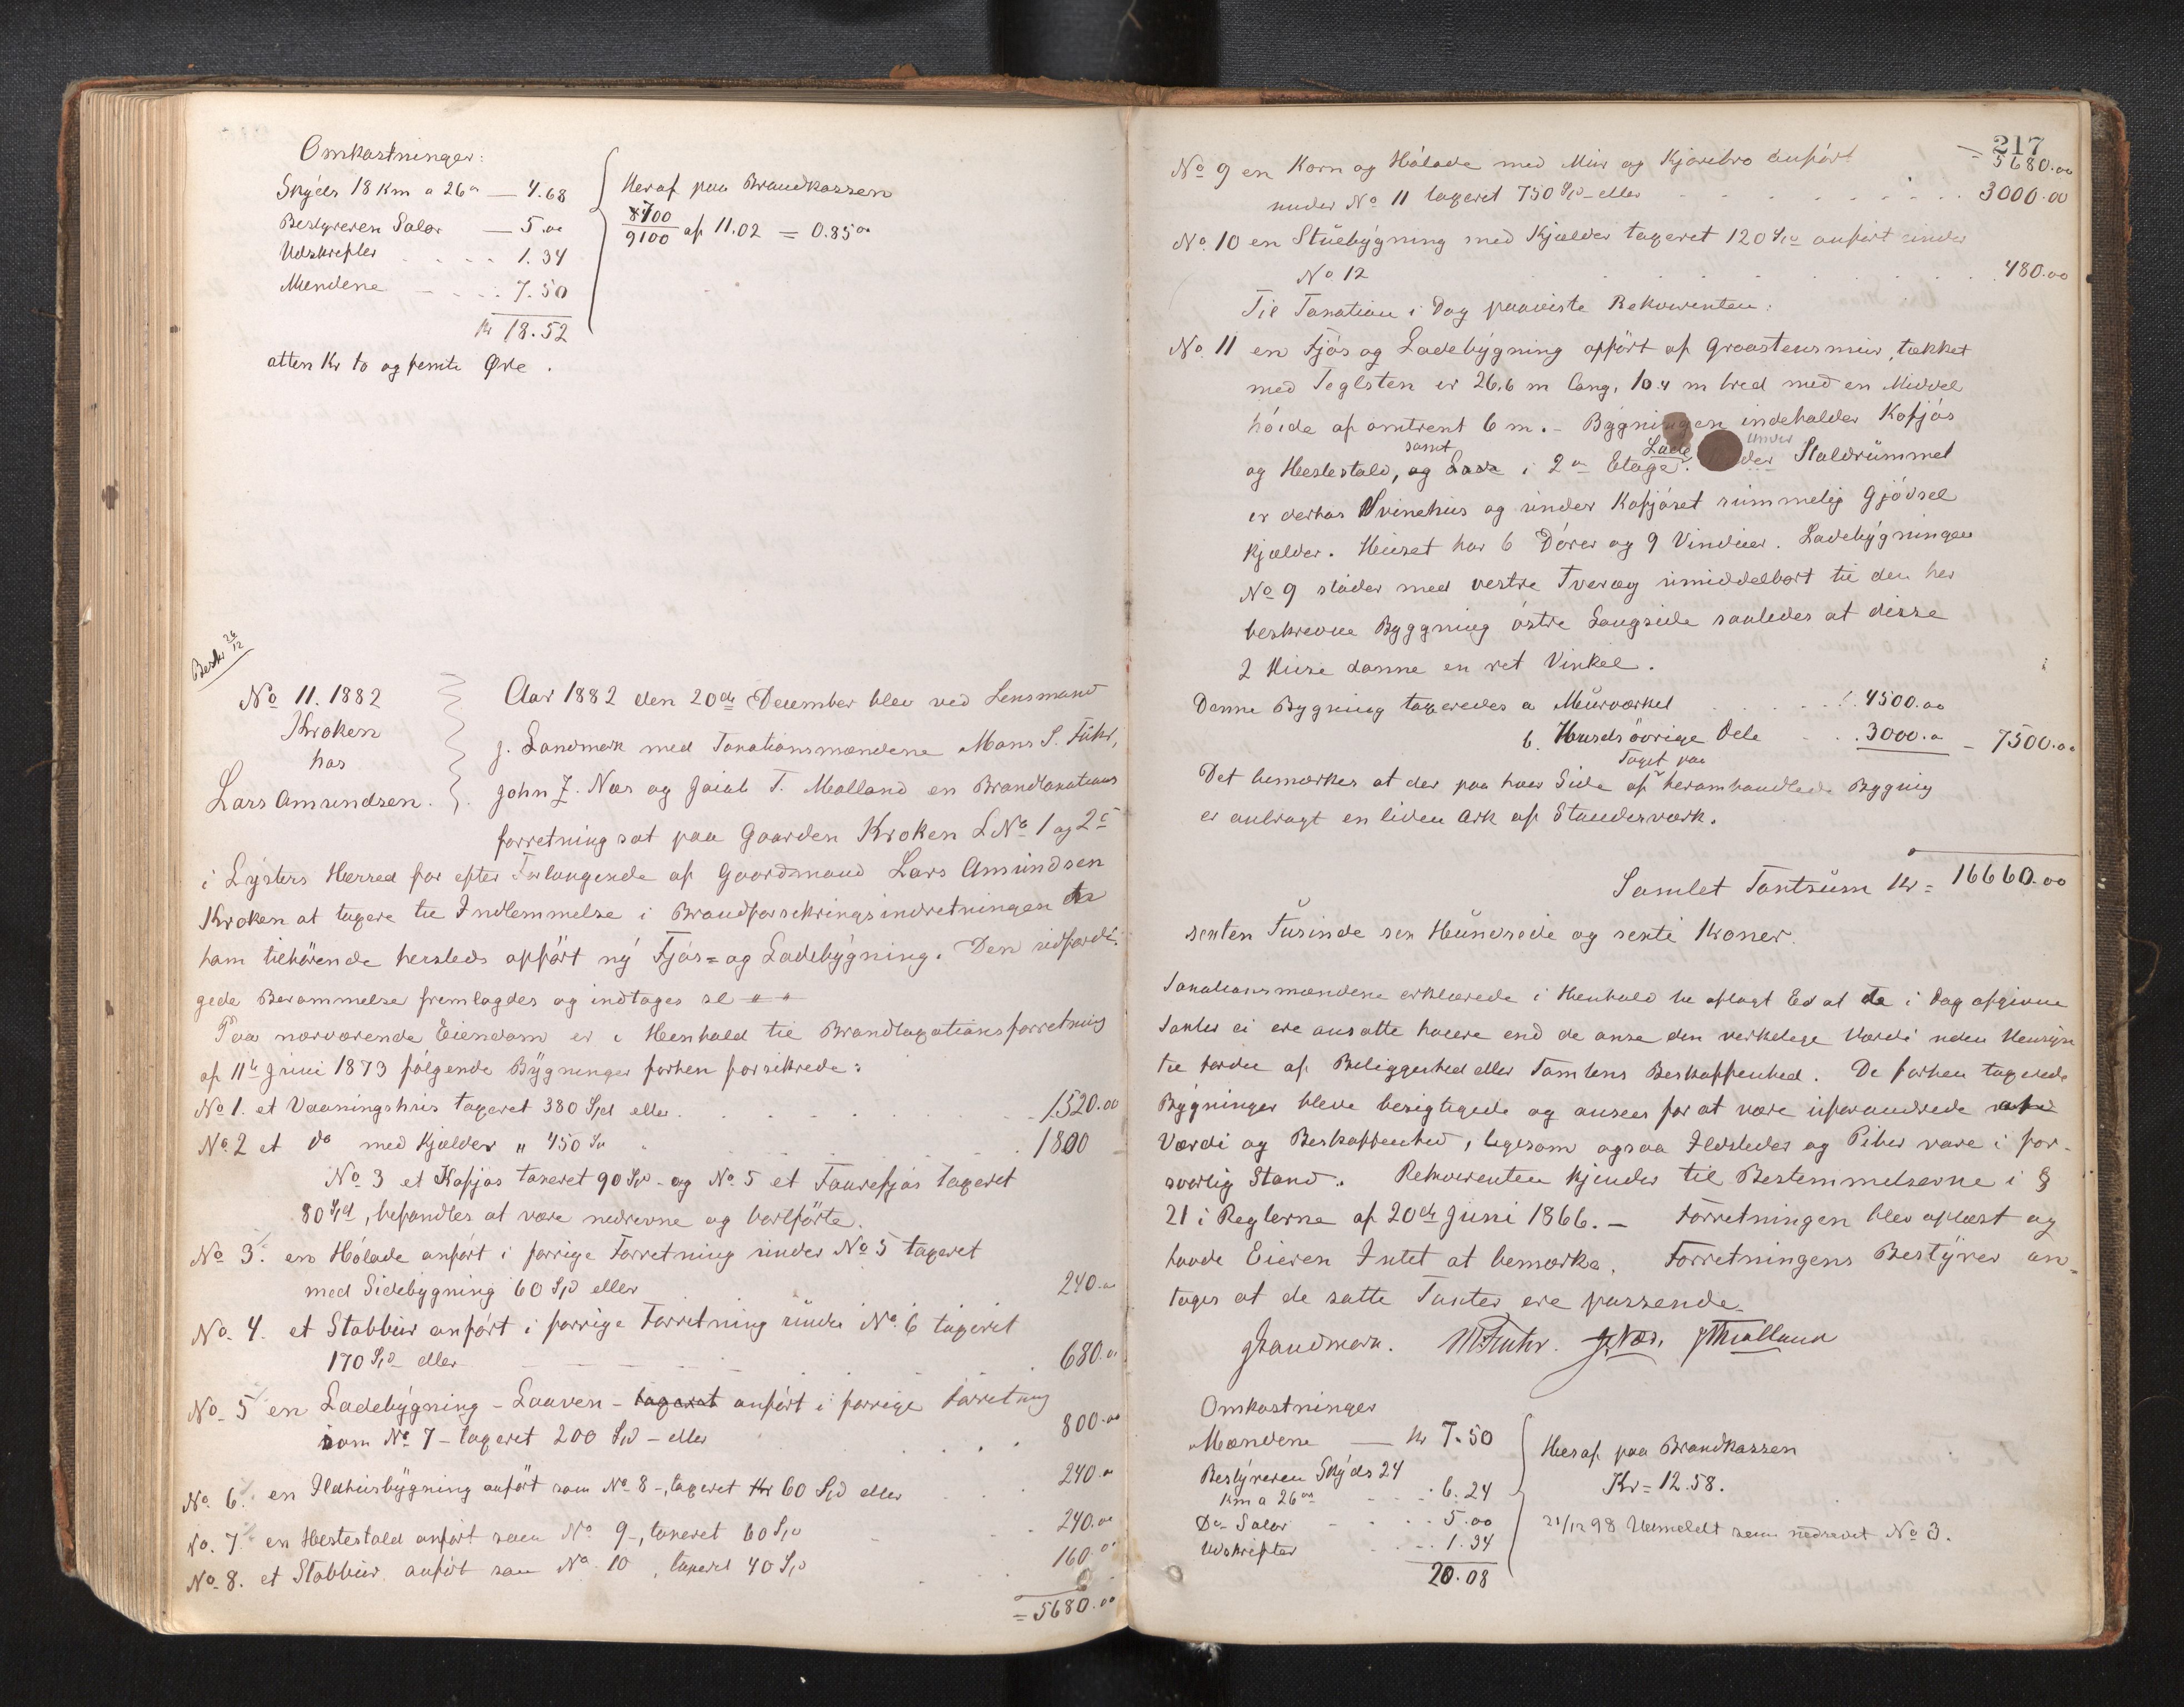 Omkostninger:
Skyds 18 Km a 26 ø — 4.68
Bestyreren Salar — 5.00
Udskrifter . . . . 1.34
Mændene — . . . 7.50
Kr 18.52
atten Kr to og femti Øre.
Heraf paa Brandkassen
8700/9100 af 11.02 = 0.85 øre
Beskr 26/12
No 11. 1882
Kroken
hos
Lars Amundsen.
Aar 1882 den 20de December blev ved Lensmand
J. Landmark med Taxationsmændene Mons S. Fuhr,
John J. Næs og Jakob T. Molland en Brandtaxations
forretning sat paa Gaarden Kroken LNo 1 og 2c
i Lysters Herred for efter Forlangende af Gaardmand Lars Amundsen
Kroken at taxere til Indlemmelse i Brandforsikringsindretningen de
ham tilhørende hersteds opført ny Fjøs= og Ladebygning. Den udfærdi-
gede Berammelse fremlagdes og indtages sl
Paa nærværende Eiendom er i Henhold til Brandtaxationsforretning
af 11te Juni 1873 følgende Bygninger forhen forsikrede:
No 1. et Vaaningshus taxeret 380 Spd eller . . . . 1520.00
No 2 et do med Kjælder " 450 Spd " . . . 1800
No 3 et Kofjøs taxeret 90 Spd - og No 5 et Faurefjøs taxeret
80 Spd, befandtes at være nedrevne og bortførte.
No 3. en Hølade anført i forrige Forretning under No 5 taxeret
med Sidebygning 60 Spd eller 240.00
No. 4. et Stabbur anført i forrige Forretning under No. 6 taxeret
170 Spd eller 680.00
No. 5 en Ladebygning - Laaven - taxeret anført i forrige Forretning
som No 7 - taxeret 200 Spd - eller . . . . 800.00
No. 6. en Ildhusbygning anført som No 8 -, taxeret Kr 60 Spd eller . . 240.00
No. 7 en Hestestald anført som No 9 -, taxeret 60 Spd 240.00
No. 8. et Stabbur anført som No 10, taxeret 40 Spd 160.00
= 5680.00
217
= 5680.00
No 9 en Korn og Hølade med Mur og Kjørebro anført
under No 11 taxeret 750 Spd - eller . . . . . 3000.00
No. 10 en Stuebygning med Kjælder taxeret 120 Spd anført under
No 12 . . . . . . 480.00
Til Taxation i Dag paaviste Rekvirenten:
No. 11 en Fjøs og Ladebygning opført af Graastensmur, tækket
med Teglsten er 26,6 m lang, 10.4 m bred med en Middel
høide af omtrent 6 m. - Bygningen indeholder Kofjøs
og Hestestald, og samt Lave i 2en Etage. Lade under Staldrummet
er derhos Svinehus og under Kofjøset rummelig Gjødsel
kjælder. Huset har 6 Døre og 9 Vinduer. Ladebygningen
No 9 støder med vestre Tverveg umiddelbart til den her
beskrevne Byggning østre Langside saaledes at disse
2 Huse danne en ret Vinkel.
Denne Bygning taxeredes a Murværket . . . . 4500.00
b. Husets øvrige Dele . . 3000.00 — 7500.00
Det bemærkes at der paa hver Side af Taget paa heromhandlede Bygning
er anbragt en liden Ark af Stænderværk.
Samlet Taxtsum Kr = 16660.00
sexten Tusinde sex Hundrede og sexti Kroner.
Taxationsmændene erklærede i Henhold til aflagt Ed at de i Dag afgivne
Taxter ei ere ansatte høiere end de anse den verkelige Værdi uden Hensyn
til Fordele af Beliggenhed eller Tomtens Beskaffenhed. De forhen taxerede
Bygninger bleve besigtigede og ansees for at være uforandrede
Værdi og Beskaffenhed, ligesom ogsaa Ildsteder og Piber vare i for-
svarlig Stand. Rekvirenten kjender til Bestemmelserne i §
21 i Reglerne af 20de Juni 1866. - Forretningen blev oplæst og
havde Eieren Intet at bemærke. Forretningens Bestyrer an-
tager at de satte Taxter ere passende.
JLandmark. MSFuhr. JJNæs, JTMolland
Omkostninger
Mændene — Kr 7.50
Bestyreren Skyds 24
Km a 26 øre . . . 6.24
Do Salar . . . . 5.00
Udskrifter . . . 1.34
20.08
Heraf paa Brandkassen
Kr = 12.58.
21/12 98 Udmeldt som nedrevet No 3.